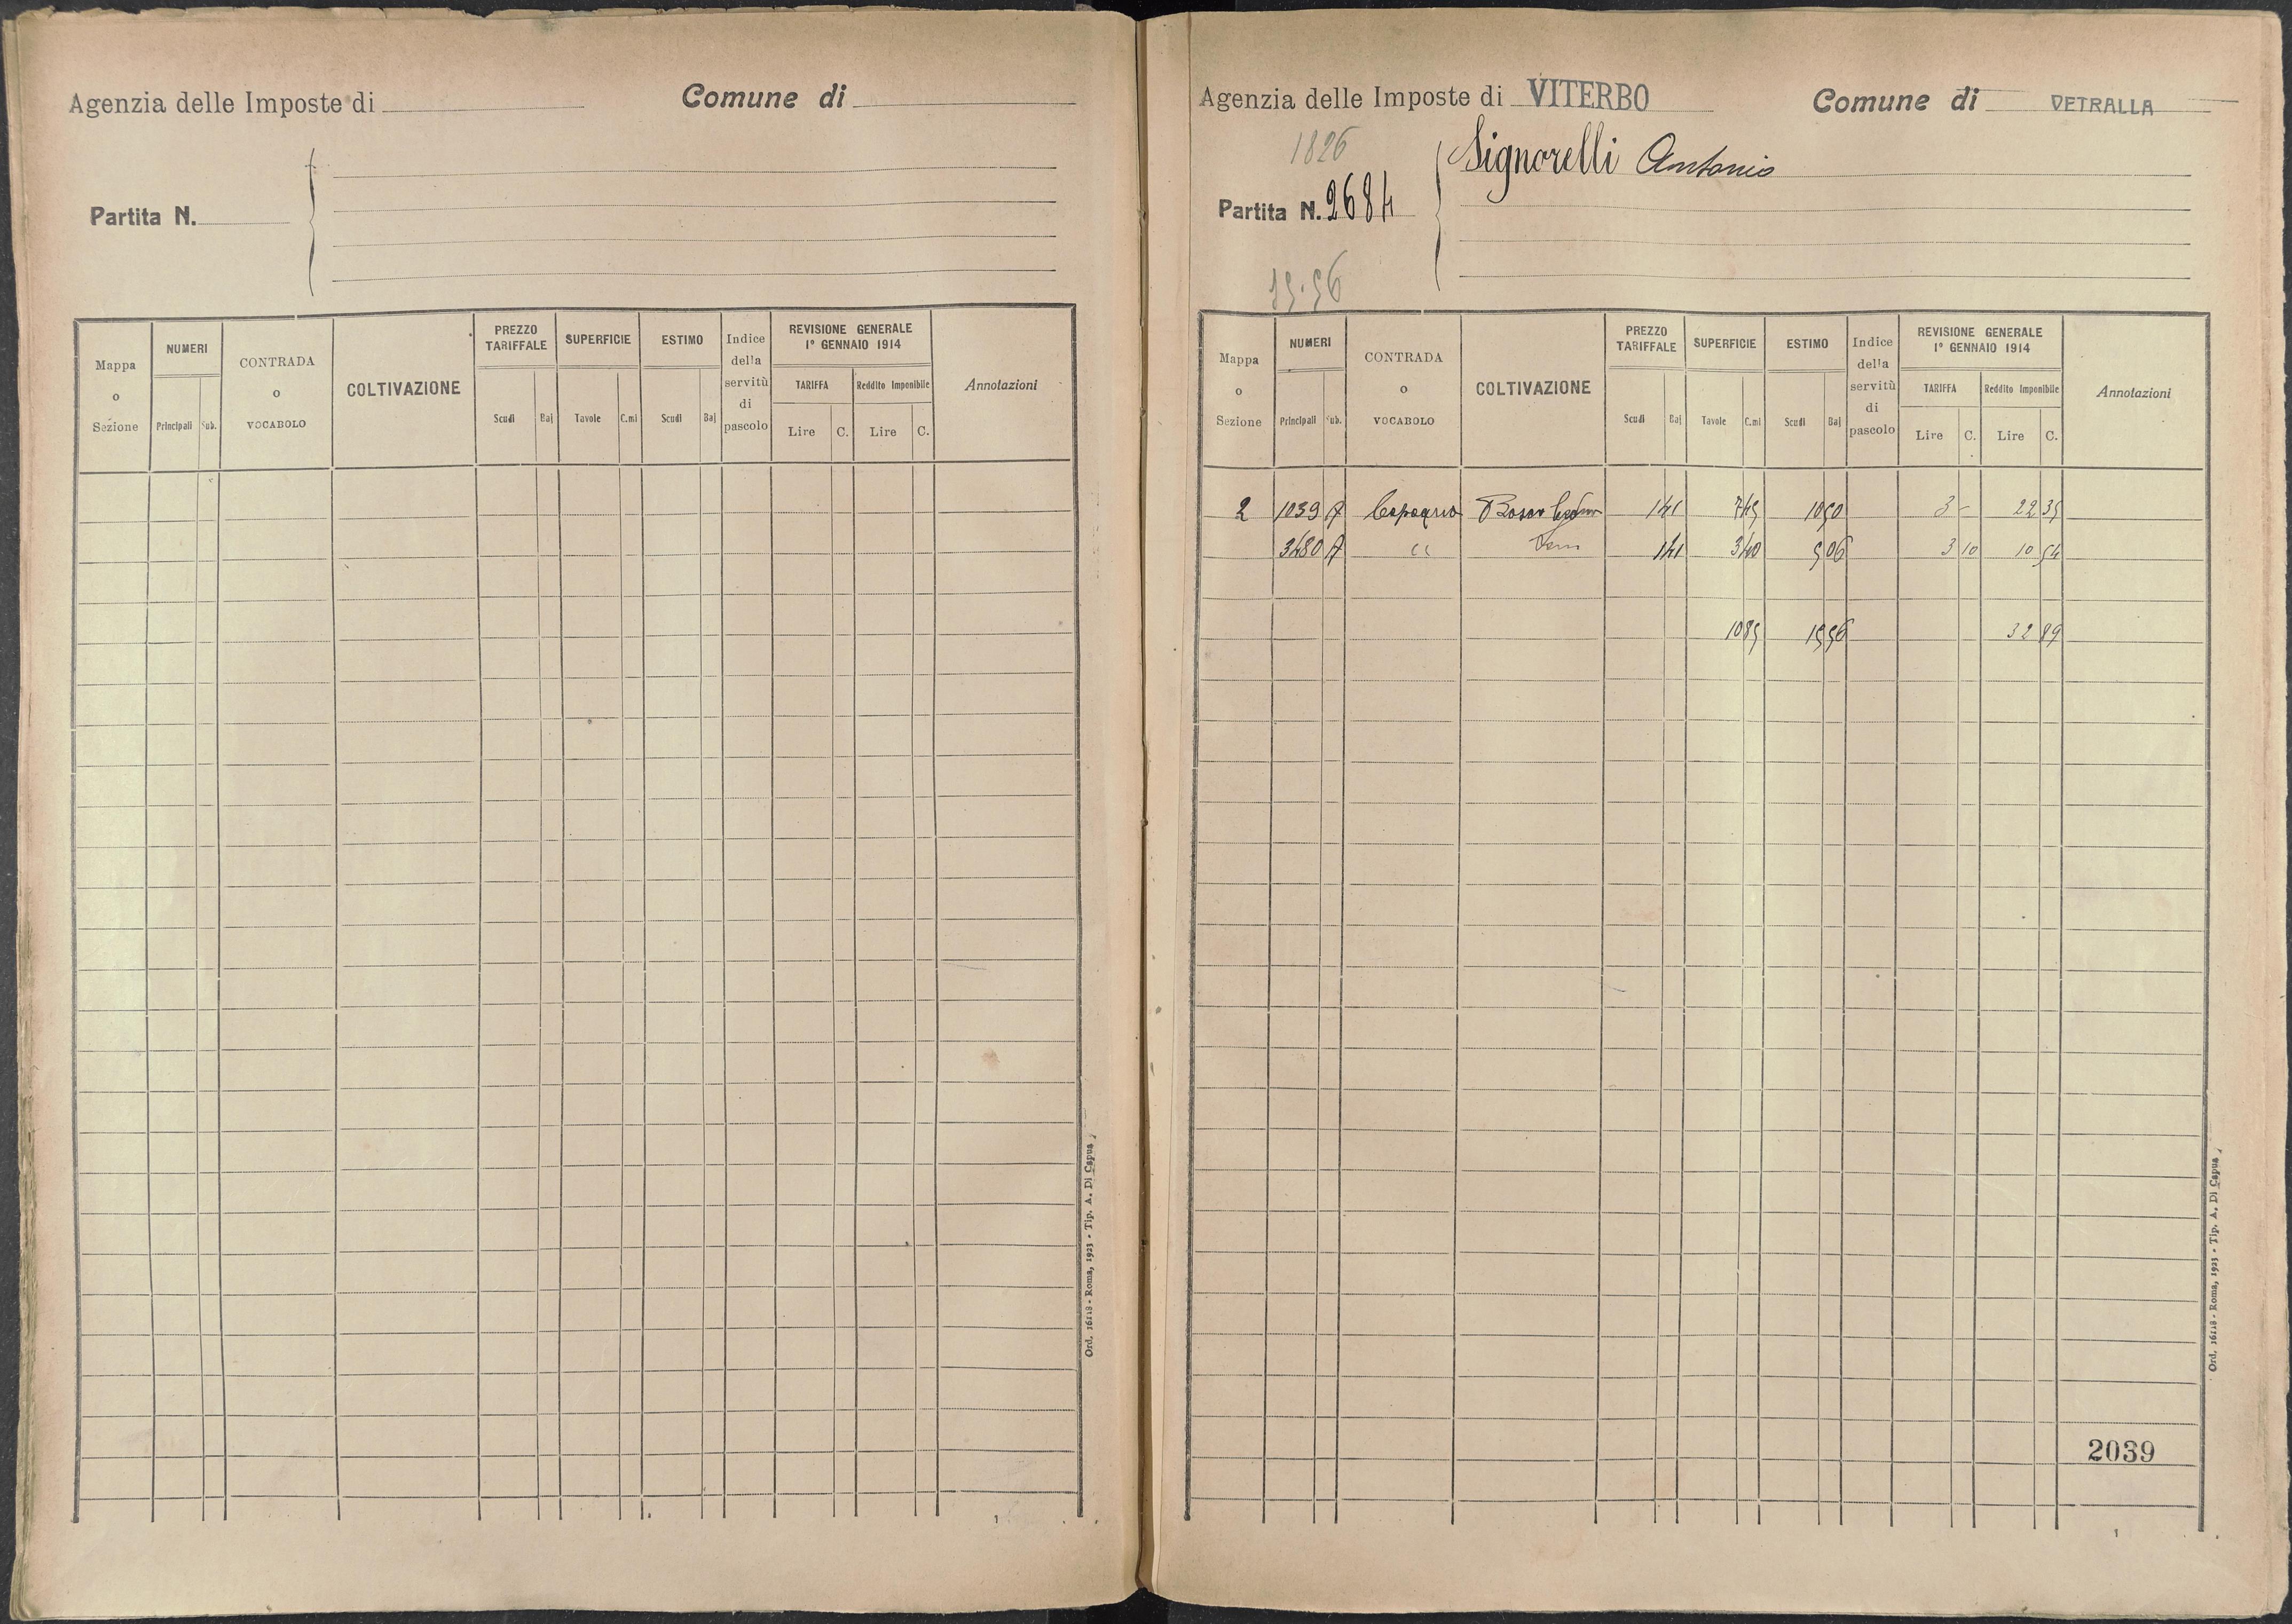 Agenzia delle Imposte di
Comune di
Partita N.
Mappa o Sezione
NUMERI
Principali
Sub.
CONTRADA o VOCABOLO
COLTIVAZIONE
PREZZO TARIFFALE
Scudi
Baj
SUPERFICIE
Tavole
C.mi
ESTIMO
Scudi
Baj
Indice della servitù di pascolo
REVISIONE GENERALE
1° GENNAIO 1914
TARIFFA
Lire
C.
Reddito Imponibile
Lire
C.
Annotazioni
Ord. 16118 - Roma, 1923 - Tip. A. Di Capua
Agenzia delle Imposte di VITERBO
Comune di VETRALLA
1826
Signorelli Antonio
Partita N. 2684
15.96
Mappa o Sezione
NUMERI
Principali
Sub.
CONTRADA o VOCABOLO
COLTIVAZIONE
PREZZO TARIFFALE
Scudi
Baj
SUPERFICIE
Tavole
C.mi
ESTIMO
Scudi
Baj
Indice della servitù di pascolo
REVISIONE GENERALE
1° GENNAIO 1914
TARIFFA
Lire
C.
Reddito Imponibile
Lire
C.
Annotazioni
2 1039 1 41 7 45 10 50 3 - 22 35
3480 " 1 41 3 40 5 06 3 10 10 54
10 85 15 56 32 89
2039
Ord. 16118 - Roma, 1923 - Tip. A. Di Capua